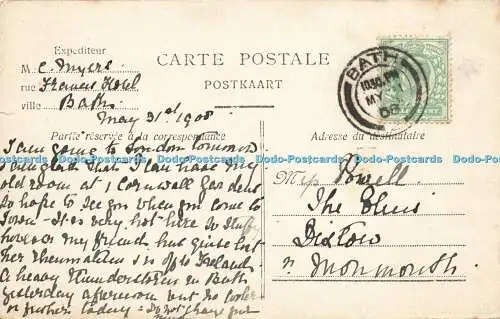 Expéditeur
M C. Myers
rue Francis Hotel
ville Bath
CARTE POSTALE
POSTKAART
BATH
May 31st 1908
Partie réservée à la correspondance
Adresse du destinataire
I am going to London tomorrow
glad that I can have my
old room at 1 Cornwall Gardens
So hope to see you when you come to
Town - It is very hot here & stuffy
however my friend has quite lost
her Rheumatism & is off to Ireland
a heavy Thunderstorm in Bath
yesterday afternoon but no cooler
or fresher today - Do not
Miss Powell
The Elms
Dixton
Nr Monmouth
Dodo-Postcards Dodo-Postcards Dodo-Postcards Dodo-Postcards Dodo-Postcards Dodo-Postcards